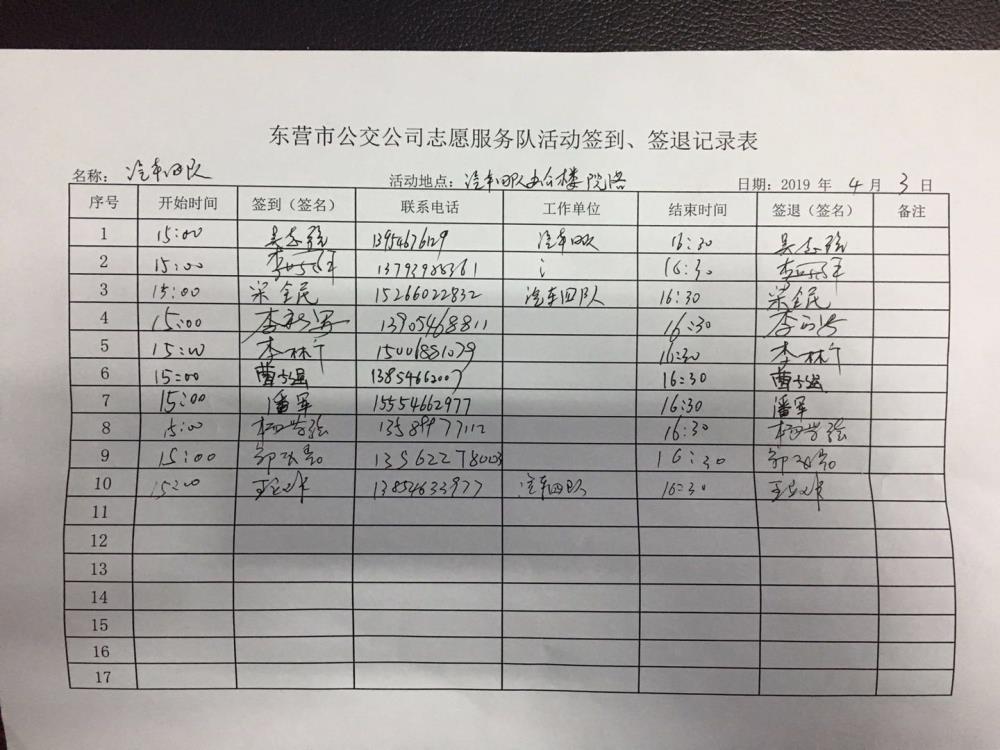 东营市公交公司志愿服务队活动签到、签退记录表
名称： 汽车四队 活动地点：汽车四队办公楼院 日期：2019 年 4 月 3 日
序号 开始时间 签到（签名） 联系电话 工作单位 结束时间 签退（签名） 备注
1 15:00 吴志强 13954676129 汽车四队 16:30 吴志强
2 15:00 16:30
3 15:00 宋全民 15266022832 汽车四队 16:30 宋全民
4 15:00 13905468811 16:30
5 15:00 李林 15006881079 16:30 李林
6 15:00 曹 13854662007 16:30 曹
7 15:00 潘军 15554662977 16:30 潘军
8 15:00 13589977112 16:30
9 15:00 13562278003 16:30
10 15:00 13854633977 汽车四队 16:30
11
12
13
14
15
16
17